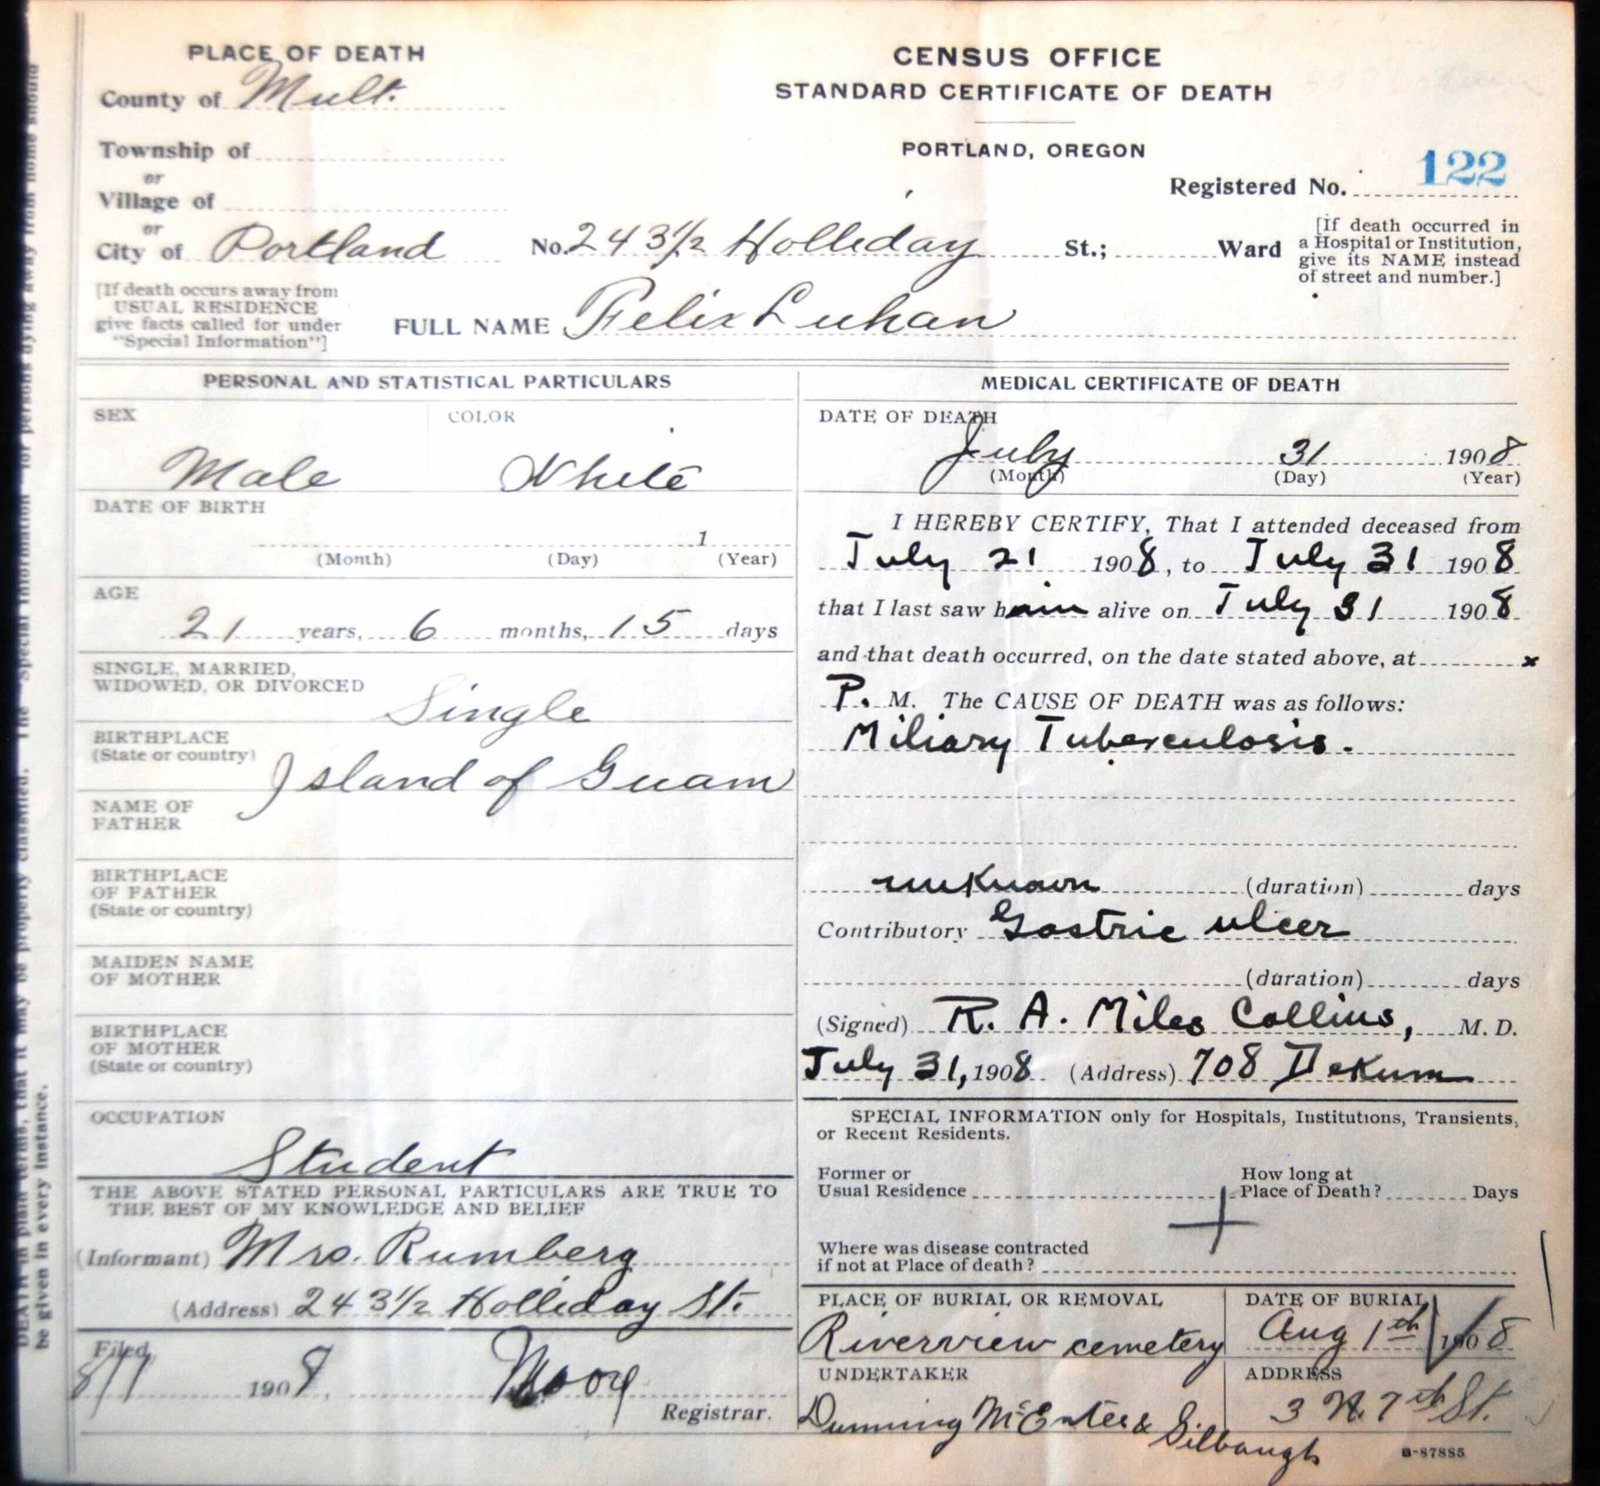 PLACE OF DEATH
County of Mult.
Township of
or
Village of
or
City of Portland
No. 243½ Holleday St.; Ward
CENSUS OFFICE
STANDARD CERTIFICATE OF DEATH
PORTLAND, OREGON
Registered No. 122
[If death occurred in
a Hospital or Institution,
give its NAME instead
of street and number.]
[If death occurs away from
USUAL RESIDENCE
give facts called for under
"Special Information"]
FULL NAME Felix Luhan
PERSONAL AND STATISTICAL PARTICULARS
SEX
Male
COLOR
White
DATE OF BIRTH
1
(Month) (Day) (Year)
AGE
21 years, 6 months, 15 days
SINGLE, MARRIED,
WIDOWED, OR DIVORCED
Single
BIRTHPLACE
(State or country)
Island of Guam
NAME OF
FATHER
BIRTHPLACE
OF FATHER
(State or country)
MAIDEN NAME
OF MOTHER
BIRTHPLACE
OF MOTHER
(State or country)
OCCUPATION
Student
THE ABOVE STATED PERSONAL PARTICULARS ARE TRUE TO
THE BEST OF MY KNOWLEDGE AND BELIEF
(Informant) Mrs. Rumberg
(Address) 243½ Holleday St.
Filed
8/1 1908,
Registrar.
MEDICAL CERTIFICATE OF DEATH
DATE OF DEATH
July 31 1908
(Month) (Day) (Year)
I HEREBY CERTIFY, That I attended deceased from
July 21 1908, to July 31 1908
that I last saw him alive on July 31 1908
and that death occurred, on the date stated above, at x
P. M. The CAUSE OF DEATH was as follows:
Miliary Tuberculosis.
unknown (duration) days
Contributory Gastric ulcer
(duration) days
(Signed) R. A. Miles Collins, M. D.
July 31, 1908 (Address) 708 Dekum
SPECIAL INFORMATION only for Hospitals, Institutions, Transients,
or Recent Residents.
Former or
Usual Residence
How long at
Place of Death? Days
Where was disease contracted
if not at Place of death?
PLACE OF BURIAL OR REMOVAL
Riverview cemetery
DATE OF BURIAL
Aug 1th 1908
UNDERTAKER
Dunning McEntee & Gilbaugh
ADDRESS
3 N. 7th St.
B-87885
DEATH in plain terms, that it may be properly classified. The "Special Information" for persons dying away from home should
be given in every instance.